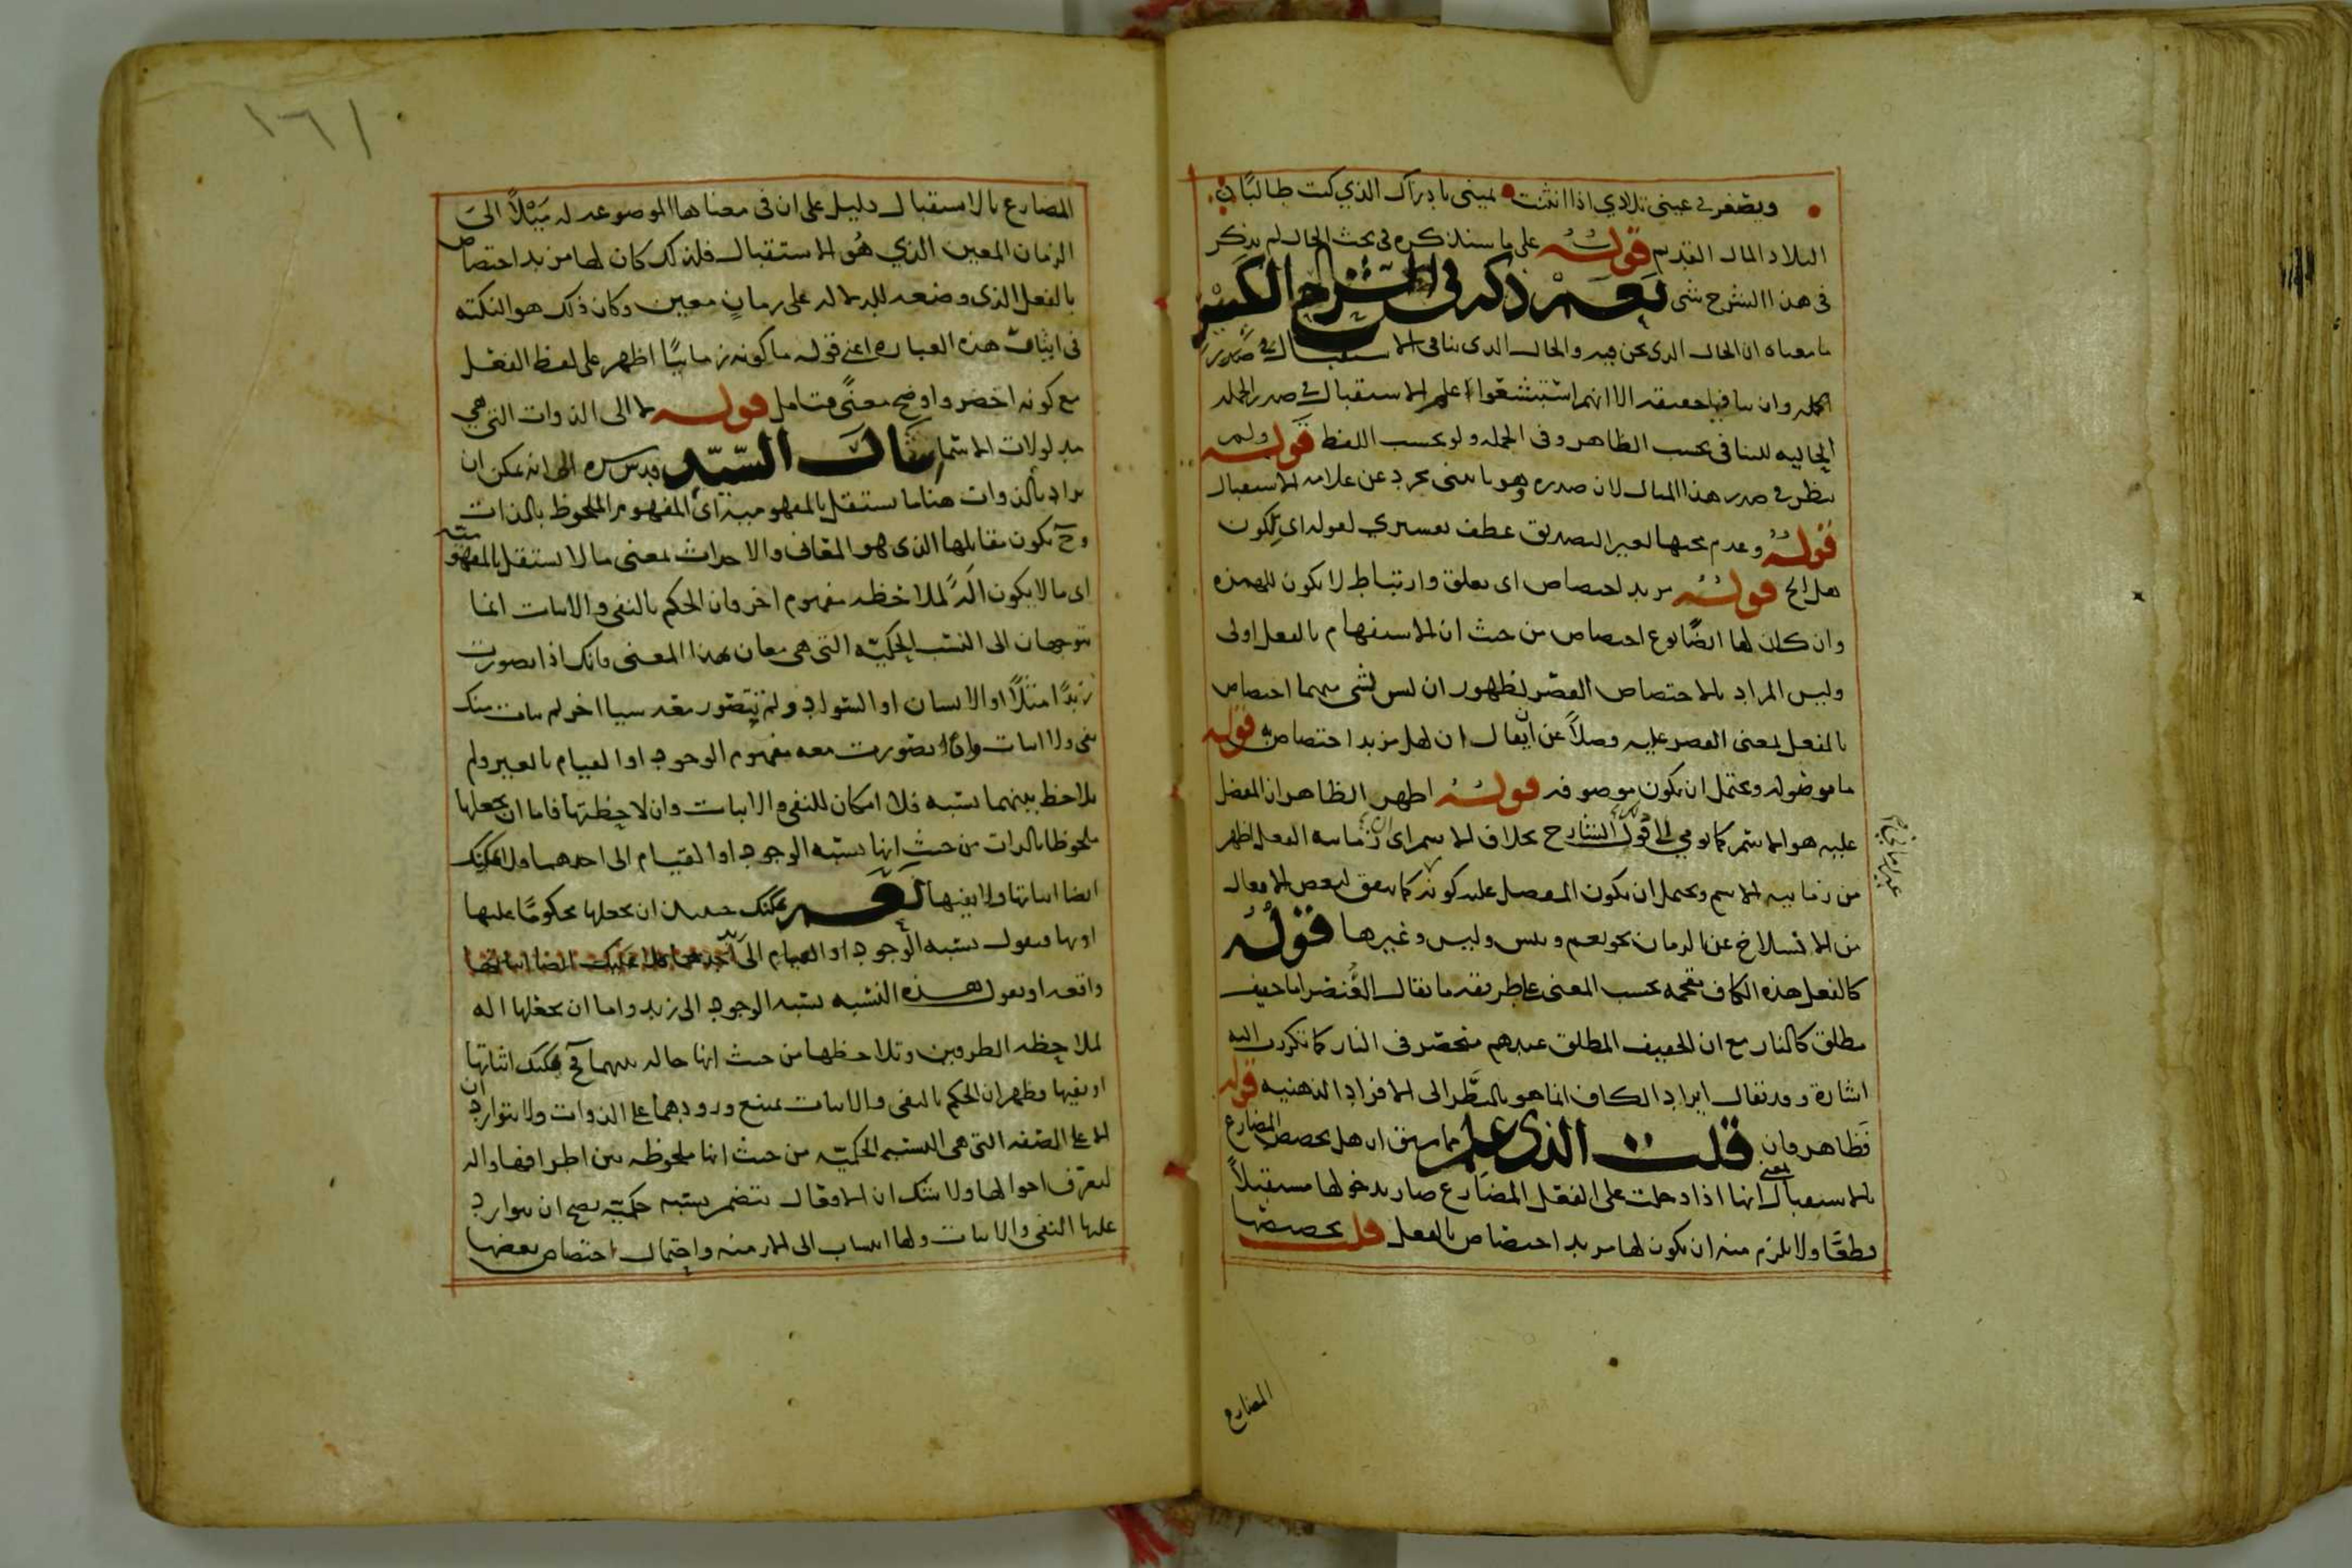 ويصغر في عيني تلادي اذا انثنت يميني بادراك الذي كنت طالبا ن
التلاد المال القديم قوله على ما سنذكره فى بحث الحال لم يذكر
فى هذا الشرح شى نعم ذكر فى الشرح الكبير
ما معناه ان الحال الذى نحن فيه والحال الذى ينافى الاستقبال في صدر
وان ينافيها حقيقة الا انهم استبشعوا علم الاستقبال في صدر الجملة
الحاليه للتنافى بحسب الظاهر وفى الجمله ولو بحسب اللفظ قوله ولم
ينظر في صدر هذا المثال لان صدره وهو ياتينى مجرد عن علامه الاستقبال
قوله وعدم مجيها لغير التصديق عطف تفسيري لقوله اي لكون
هل الخ قوله مزيد اختصاص اى تعلق وارتباط لا يكون للهمزه
وان كان لها ايضًا نوع اختصاص من حيث ان الاستفهام بالفعل اولى
وليس المراد بالاختصاص القصر لظهور ان ليس لشى منهما اختصاص
بالفعل بمعنى القصر عليه فضلاً عن ان يقال ان لهل مزيد اختصاص به قوله
ما موصوله ويحتمل ان يكون موصوفه قوله اظهر الظاهر ان المفضل
عليه هو الاسم كما يومي اليه قول الشارح بخلاف الاسم اى زمانيه الفعل اظهر
من زمانيه الاسم ويحتمل ان يكون المفصل عليه كونه كما يتفق لبعض الافعال
من الانسلاخ عن الزمان نحو نعم وبئس وليس وغيرها قوله
كالفعل هذه الكاف مقحمه بحسب المعنى على طريقه ما يقال العُنصر اما خفيف
مطلق كالنار مع ان الخفيف المطلق عندهم منحصر فى النار كما تكررت اليه
اشارة وقد يقال ايراد الكاف انما هو بالنظر الى الافراد الذهنيه قوله
فظاهر فان قلت الذى علم مما سبق ان هل يخصص المضارع
بالاستقبال يعنى انها اذا دخلت على الفعل المضارع صار بدخولها مستقبلاً
قطعًا ولا يلزم منه ان يكون لها مزيد اختصاص بالفعل قلت تخصيصها
المضارع
١٦١
المضارع بالاستقبال دليل على ان فى معناها الموضوعه له مَيْلاً الى
الزمان المعين الذي هُو الاستقبال فلذلك كان لها مزيد اختصاص
بالفعل الذى وضعه للدلاله على زمانٍ معين وكان ذلك هو النكته
فى ايثار هذه العباره اعنى قوله ما كونه زمانيًا اظهر على لفظ الفعل
مع كونه اخصر واوضح معنًى فتامل قوله لا الى الذوات التى هي
مدلولات الاسما اشار السّيّد قدس سره الى انه يمكن ان
يراد بالذوات هنا ما يستقل بالمفهوميه اى المفهوم الملحوظ بالذات
وح يكون مقابلها الذى هو المعانى والاحداث بمعنى ما لا يستقل بالمفهوميه
اى ما لا يكون الةً لملاحظه مفهوم اخر فان الحكم بالنفى والاثبات انما
يتوجهان الى النسب الحكميّه التى هى معان بهذا المعنى فانك اذا تصورت
زيدًا مثلاً او الانسان او السّواد ولم تتصور معه شيا اخر لم يتات منك
نفى ولا اثبات واذا تصورت معه مفهوم الوجود او القيام بالغير ولم
يلاحظ بينهما نسبه فلا امكان للنفى والاثبات وان لاحظتها فاما ان تجعلها
ملحوظا بالذات من حيث انها نسبه الوجود او القيام الى احدهما ولا يمكنك
ايضا اثباتها ولا نفيها نعم يمكنك حينئذ ان تجعلها محكومًا عليها
او بها فتقول نسبه الوجود او القيام الى
واقعه او تقول هذه النسبه نسبه الوجود الى زيد واما ان تجعلها اله
لملاحظه الطرفين وتلاحظها من حيث انها حاله بينهما فح يمكنك اثباتها
او نفيها فظهر ان الحكم بالنفى والاثبات يمتنع ورودهما على الذوات ولا يتواردان
الا على الصفه التى هى النسبه الحكميّه من حيث انها ملحوظه بين اطرافها واله
لتعرّف احوالها ولا شك ان الافعال تتضمن نسبه حكميّه يصح ان يتوارد
عليها النفى والاثبات ولها انتساب الى الازمنه واحتمال اختصاص بعضها